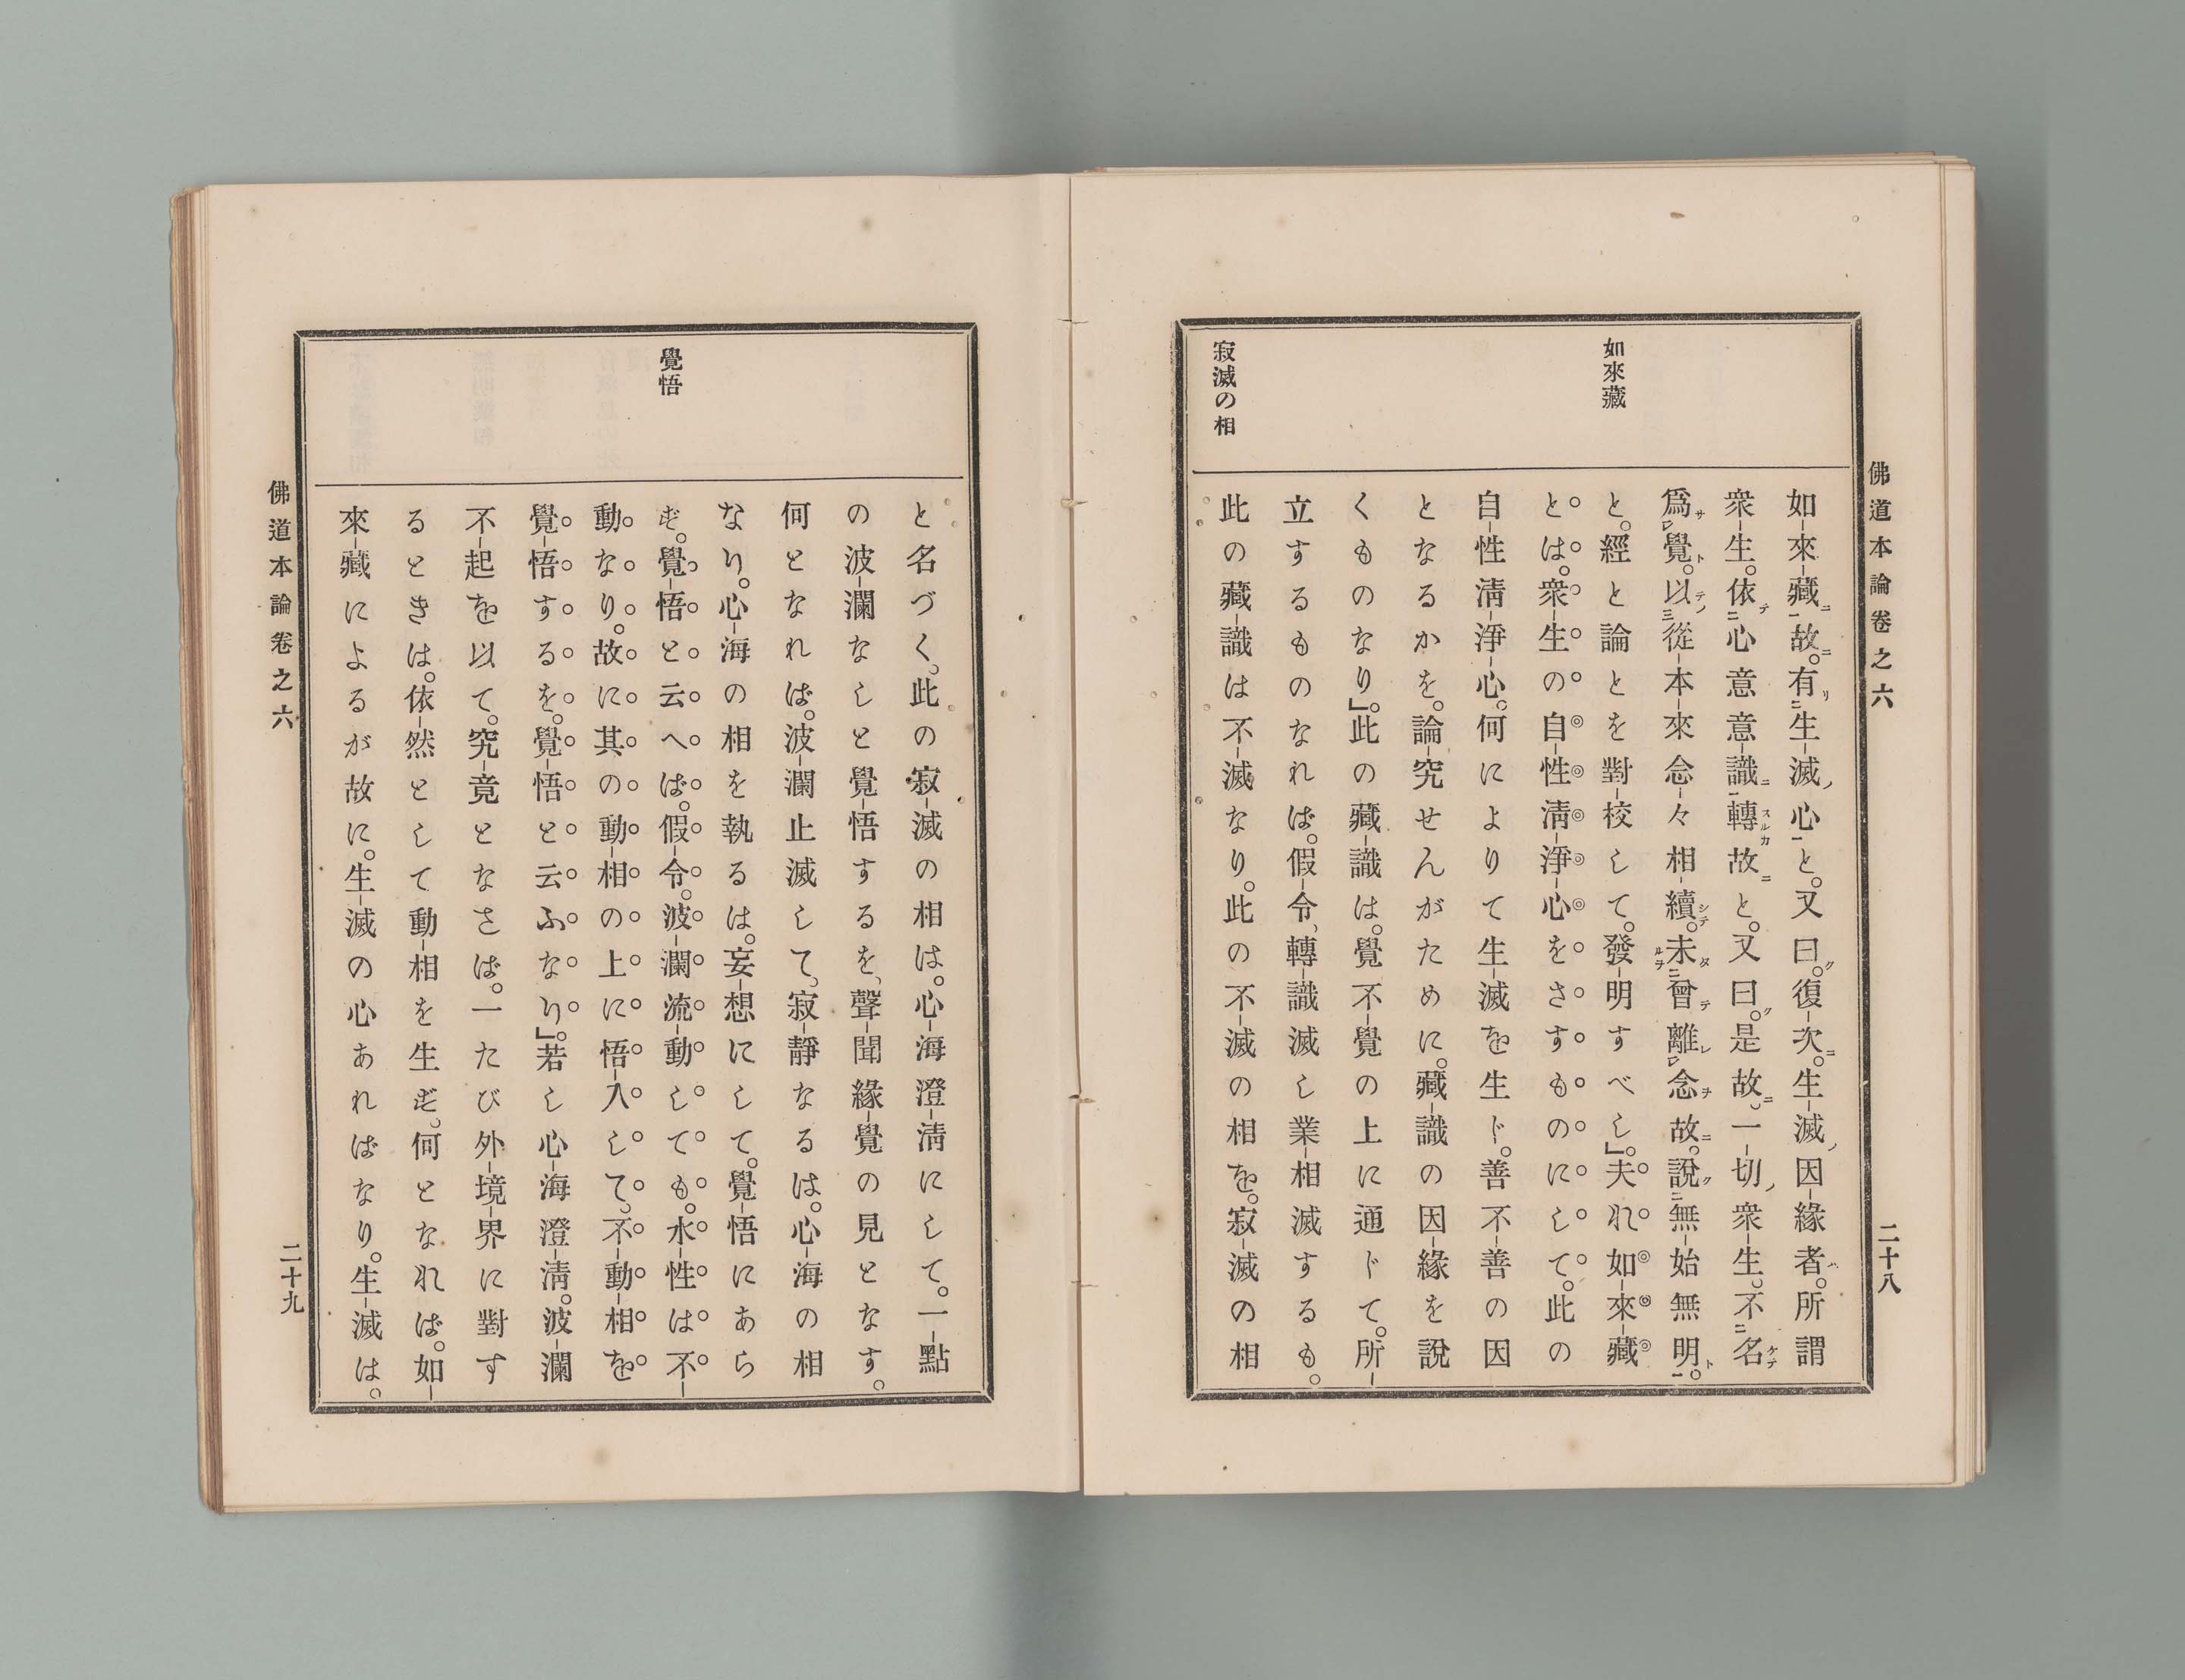 佛道本論卷之六
二十八
如來藏
寂滅の相
如來藏故。有生滅心と。又曰。復次。生滅因緣者。所謂
衆生。依心意意識轉故と。又曰。是故。一切衆生。不名
爲覺。以從本來念々相續。未曾離念故。說無始無明。
と。經と論とを對校して。發明すべし」。夫れ如來藏
とは。衆生の自性淸淨心をさすものにして。此の
自性淸淨心。何によりて生滅を生ド。善不善の因
となるかを。論究せんがために。藏識の因緣を說
くものなり」。此の藏識は。覺不覺の上に通ドて。所
立するものなれば。假令、轉識滅し業相滅するも。
此の藏識は不滅なり。此の不滅の相を。寂滅の相
覺悟
と名づく。此の寂滅の相は。心海澄淸にして。一點
の波瀾なしと覺悟するを、聲聞緣覺の見となす。
何となれば。波瀾止滅して、寂靜なるは。心海の相
なり。心海の相を執るは。妄想にして。覺悟にあら
ず。覺悟と云へば。假令。波瀾流動しても。水性は不
動なり。故に其の動相の上に悟入して、不動相を
覺悟するを。覺悟と云ふなり」。若し心海澄淸。波瀾
不起を以て。究竟となさば。一たび外境界に對す
るときは。依然として動相を生ず。何となれば。如
來藏によるが故に。生滅の心あればなり。生滅は。
佛道本論卷之六
二十九